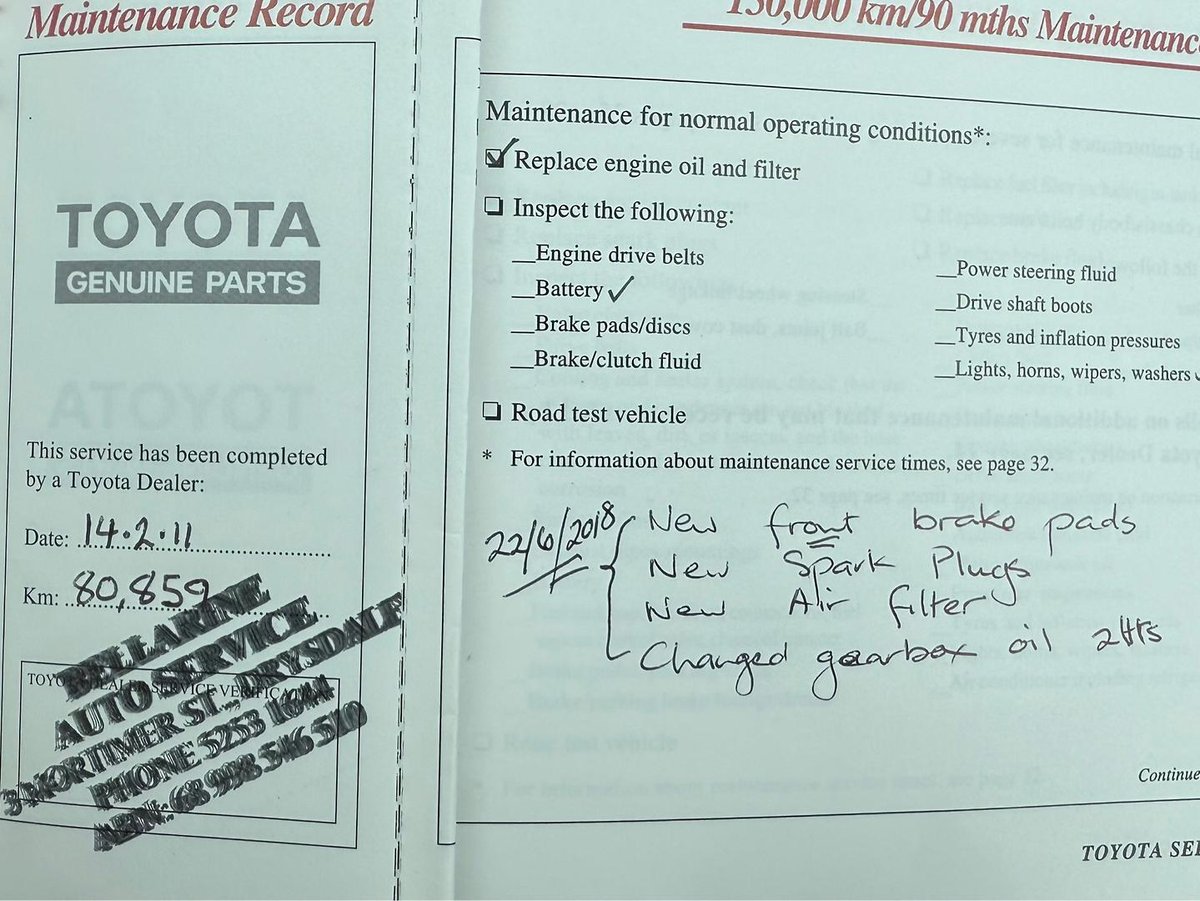 Maintenance Record
TOYOTA
GENUINE PARTS
This service has been completed
by a Toyota Dealer:
Date: 14.2.11
Km: 80,859
BELLARINE
AUTO SERVICE
3 MORTIMER ST., DRYSDALE
PHONE 5253 1644
ABN: 68 998 546 510
150,000 km/90 mths Maintenance
Maintenance for normal operating conditions*:
Replace engine oil and filter
Inspect the following:
Engine drive belts
Battery ✓
Brake pads/discs
Brake/clutch fluid
Power steering fluid
Drive shaft boots
Tyres and inflation pressures
Lights, horns, wipers, washers
Road test vehicle
* For information about maintenance service times, see page 32.
22/6/2018
New front brake pads
New Spark Plugs
New Air filter
Changed gearbox oil 2ltrs
Continue
TOYOTA SE